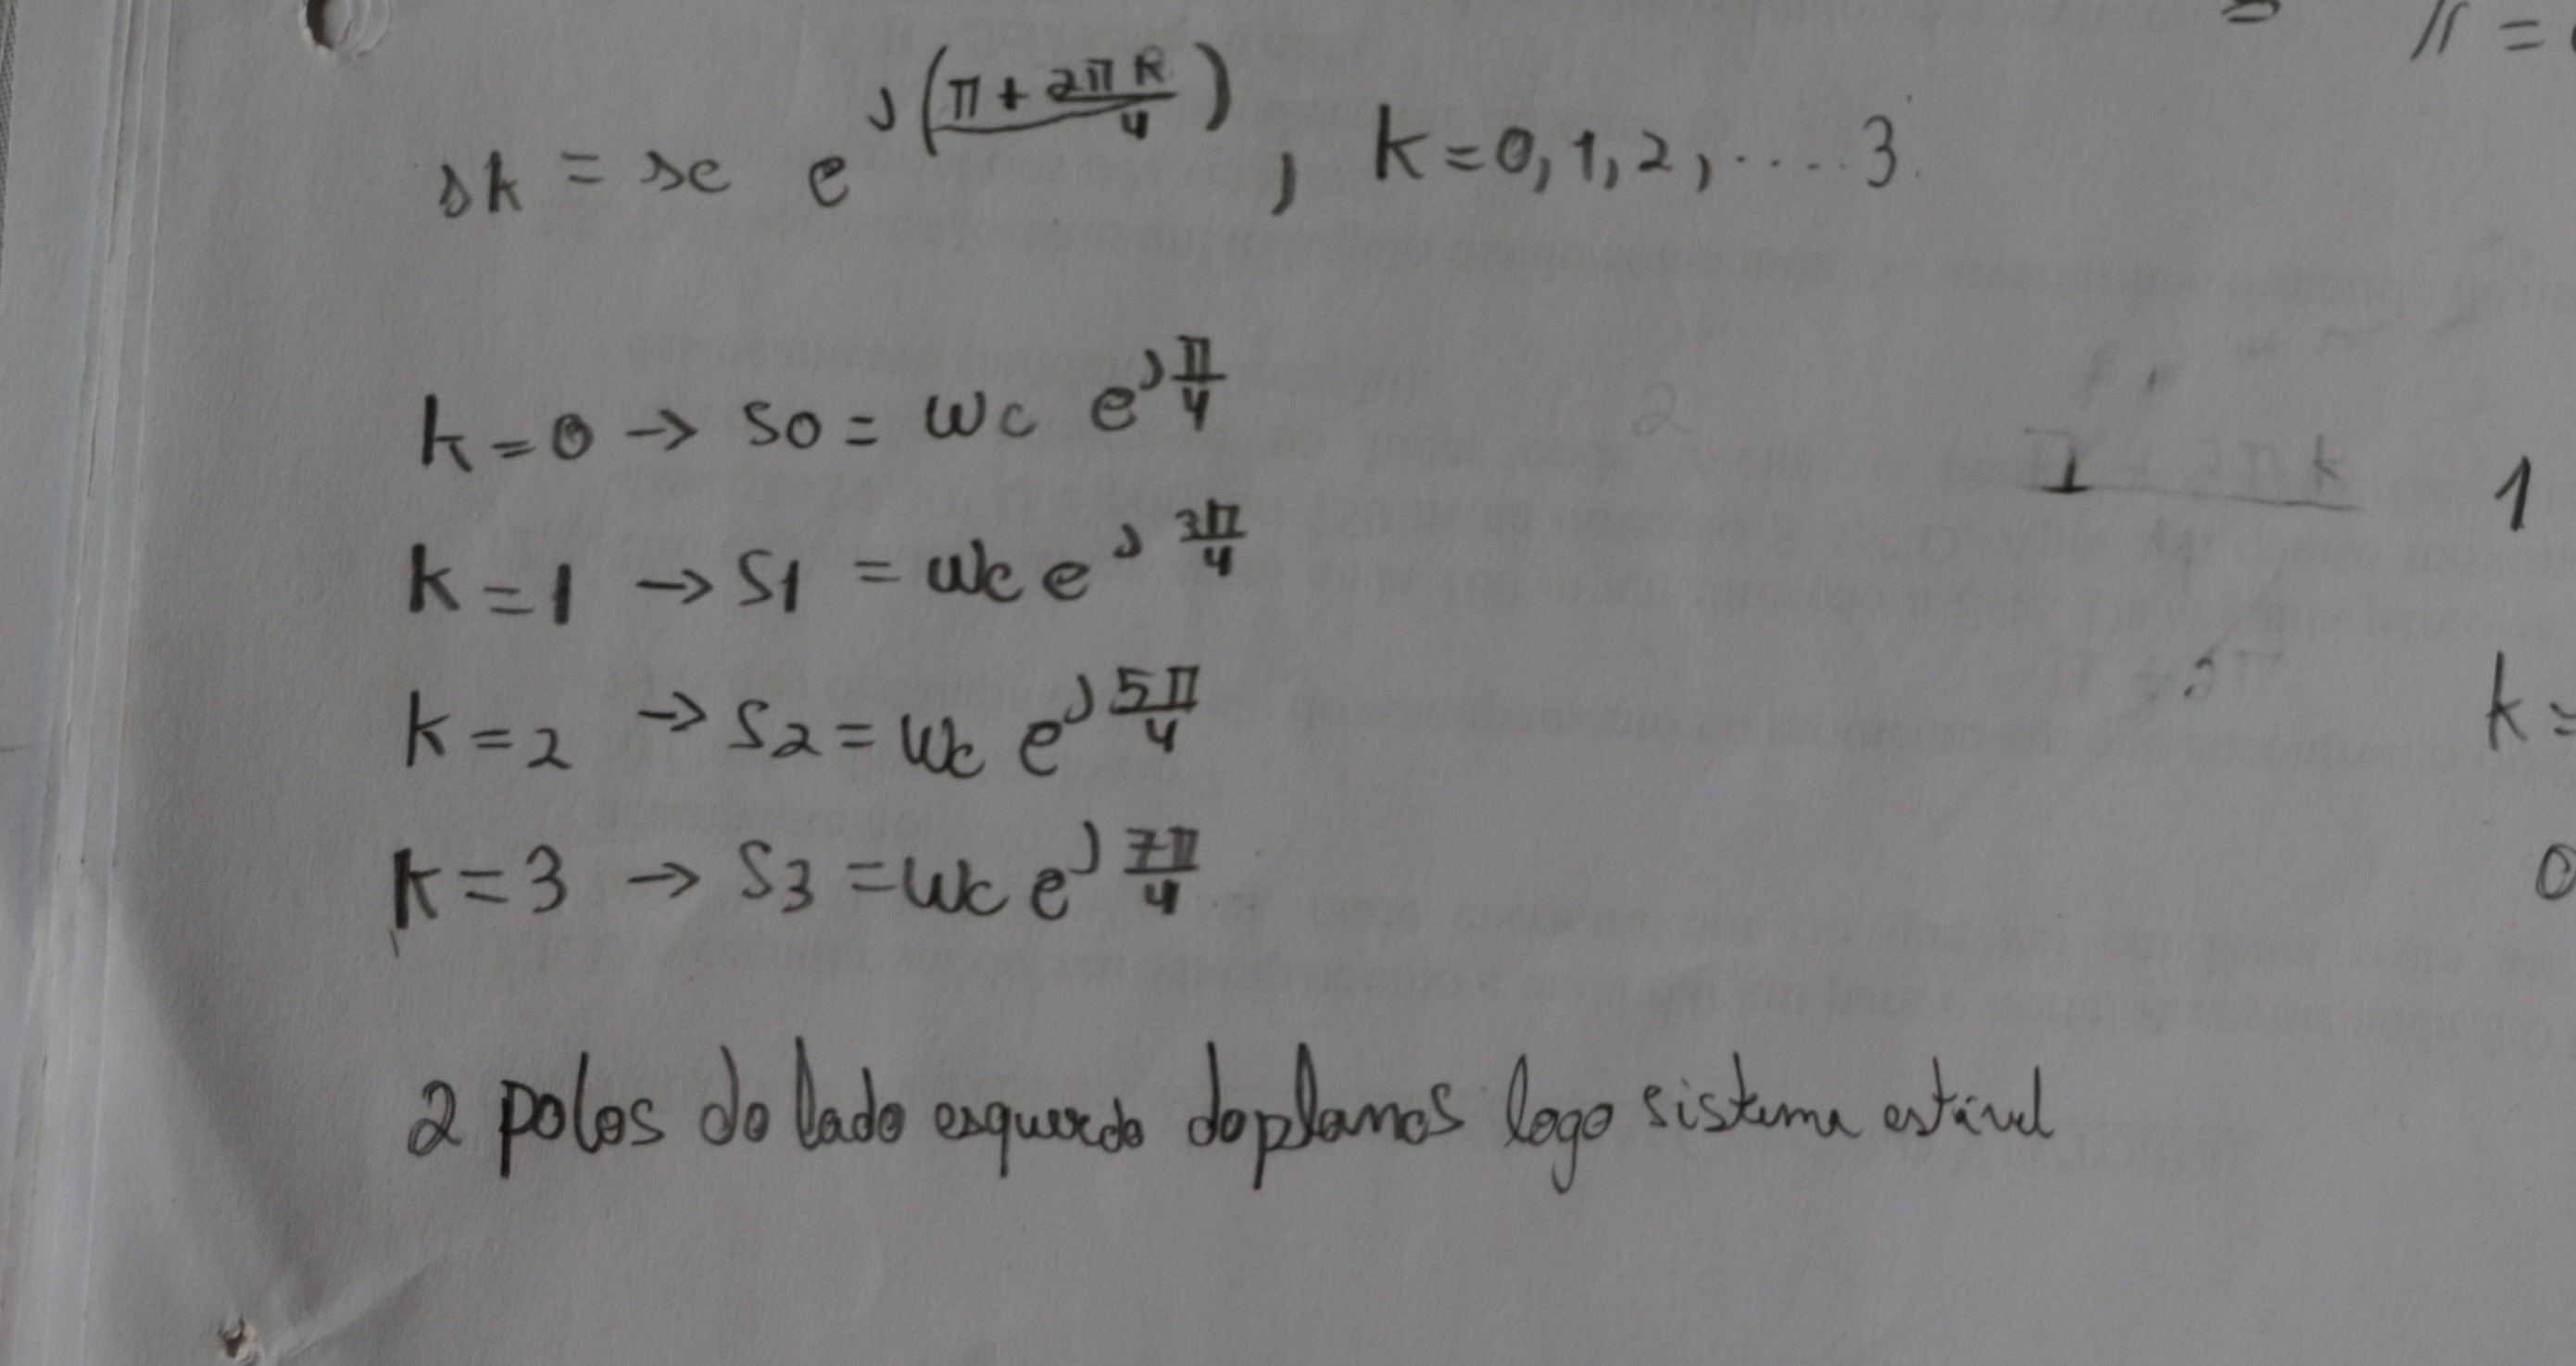 π =
sk = sc e^j(π + 2πk / 4) , k = 0, 1, 2, .... 3
k = 0 → S0 = wc e^j π/4
2
π + 2πk
1
k = 1 → S1 = wc e^j 3π/4
k = 2 → S2 = wc e^j 5π/4
k =
k = 3 → S3 = wc e^j 7π/4
0
2 polos do lado esquerdo do plano s logo sistema estável